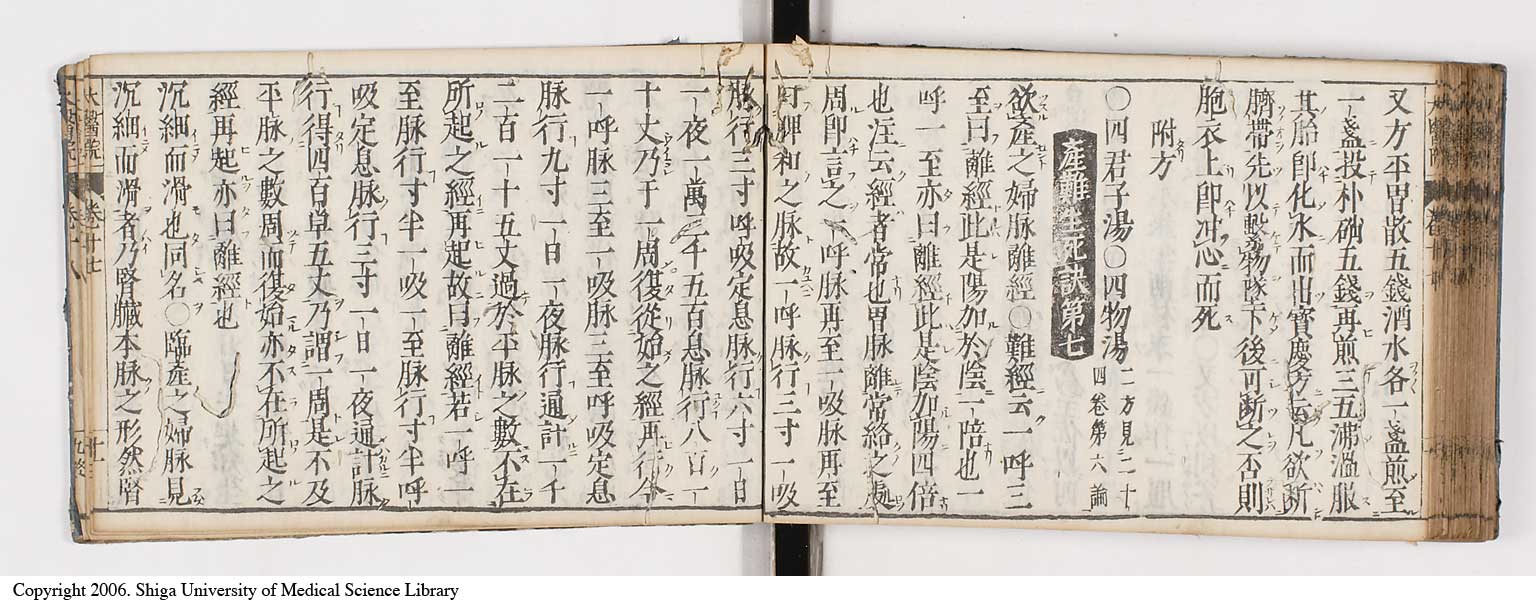 又方平胃散五錢酒水各一盞煎至
一盞投朴硝五錢再煎三五沸溫服
其胎即化水而出寶慶方云凡欲斷
臍帶先以繫物墜下後可斷之否則
胞衣上即冲心而死
附方
○四君子湯○四物湯二方見二十四卷第六論
產難生死訣第七
欲產之婦脉離經○難經云一呼三
至曰離經此是陽加於陰二陪也一
呼一至亦曰離經此是陰加陽四倍
也注云經者常也胃脉離常絡之處
周即言之一呼脉再至一吸脉再至
和之脉故一呼脉行三寸一吸
脉行三寸呼吸定息脉行六寸一日
一夜一萬三千五百息脉行八百一
十丈乃于一周復從始之經再行今
一呼脉三至一吸脉三至呼吸定息
脉行九寸一日一夜脉行通計一千
二百一十五丈過於平脉之數不在
所起之經再起故曰離經若一呼一
至脉行寸半一吸一至脉行寸半呼
吸定息脉行三寸一日一夜通計脉
行得四百單五丈乃謂一周是不及
平脉之數周而復始亦不在所起之
經再起亦曰離經也
沉細而滑也同名○臨產之婦脉見
沉細而滑者乃腎臟本脉之形然腎
Copyright 2006. Shiga University of Medical Science Library